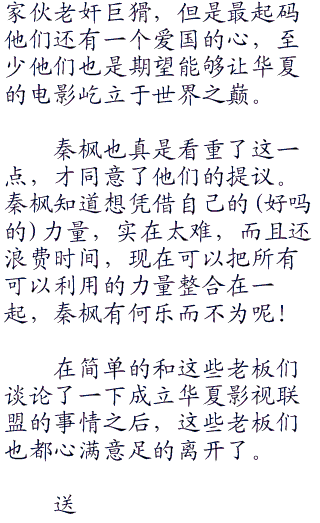 家伙老奸巨猾，但是最起码
他们还有一个爱国的心，至
少他们也是期望能够让华夏
的电影屹立于世界之巅。
秦枫也真是看重了这一
点，才同意了他们的提议。
秦枫知道想凭借自己的(好吗
的)力量，实在太难，而且还
浪费时间，现在可以把所有
可以利用的力量整合在一
起，秦枫有何乐而不为呢！
在简单的和这些老板们
谈论了一下成立华夏影视联
盟的事情之后，这些老板们
也都心满意足的离开了。
送